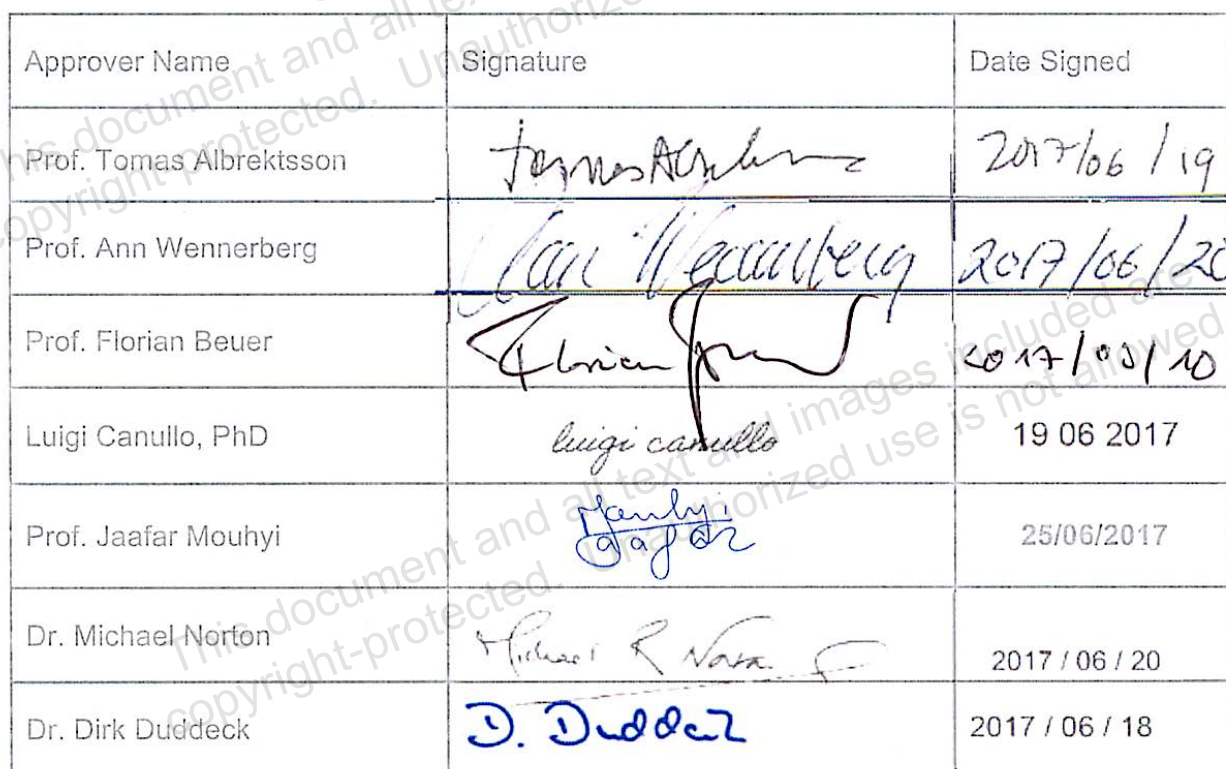 This document and all text
copyright-protected. Unauthorized
Approver Name Signature Date Signed
Prof. Tomas Albrektsson Tomas 2017/06/19
Prof. Ann Wennerberg Ann Wennerberg 2017/06/20
Prof. Florian Beuer Florian 2017/ /10
Luigi Canullo, PhD luigi canullo 19 06 2017
Prof. Jaafar Mouhyi Mouhyi Jaafar 25/06/2017
Dr. Michael Norton Michael R Norton 2017 / 06 / 20
Dr. Dirk Duddeck D. Duddeck 2017 / 06 / 18
This document and all text and images included are
copyright-protected. Unauthorized use is not allowed